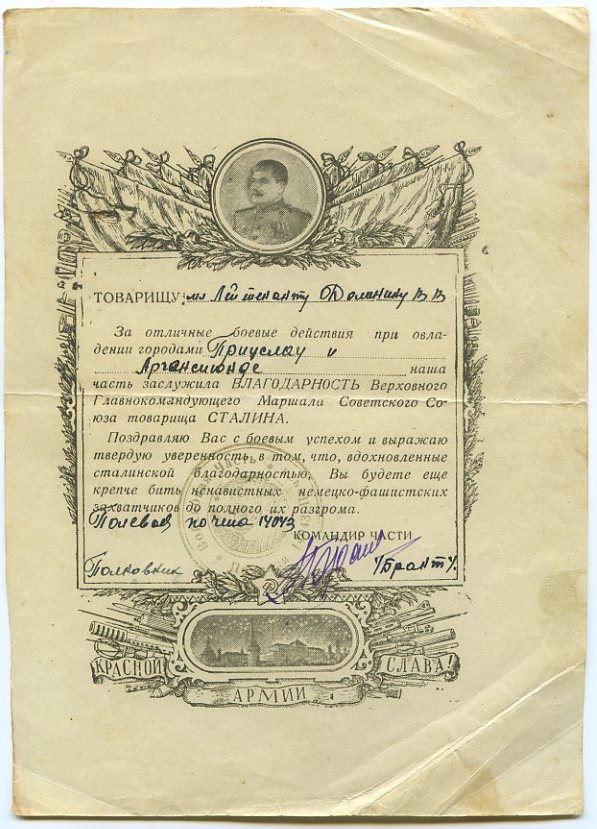 ТОВАРИЩУ мл Лейтенанту Долинину В В
За отличные боевые действия при овла-
дении городами Прицслау и
наша
часть заслужила БЛАГОДАРНОСТЬ Верховного
Главнокомандующего Маршала Советского Со-
юза товарища СТАЛИНА.
Поздравляю Вас с боевым успехом и выражаю
твердую уверенность в том, что, вдохновленные
сталинской благодарностью, Вы будете еще
крепче бить ненавистных немецко-фашистских
захватчиков до полного их разгрома.
Полевая почта 14043
КОМАНДИР ЧАСТИ
Полковник /Брант/.
КРАСНОЙ
АРМИИ
СЛАВА!